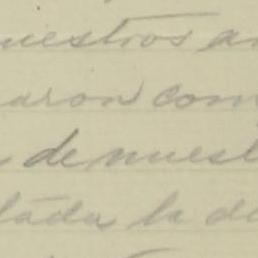 uestros an
aron com
de nuest
lada la de